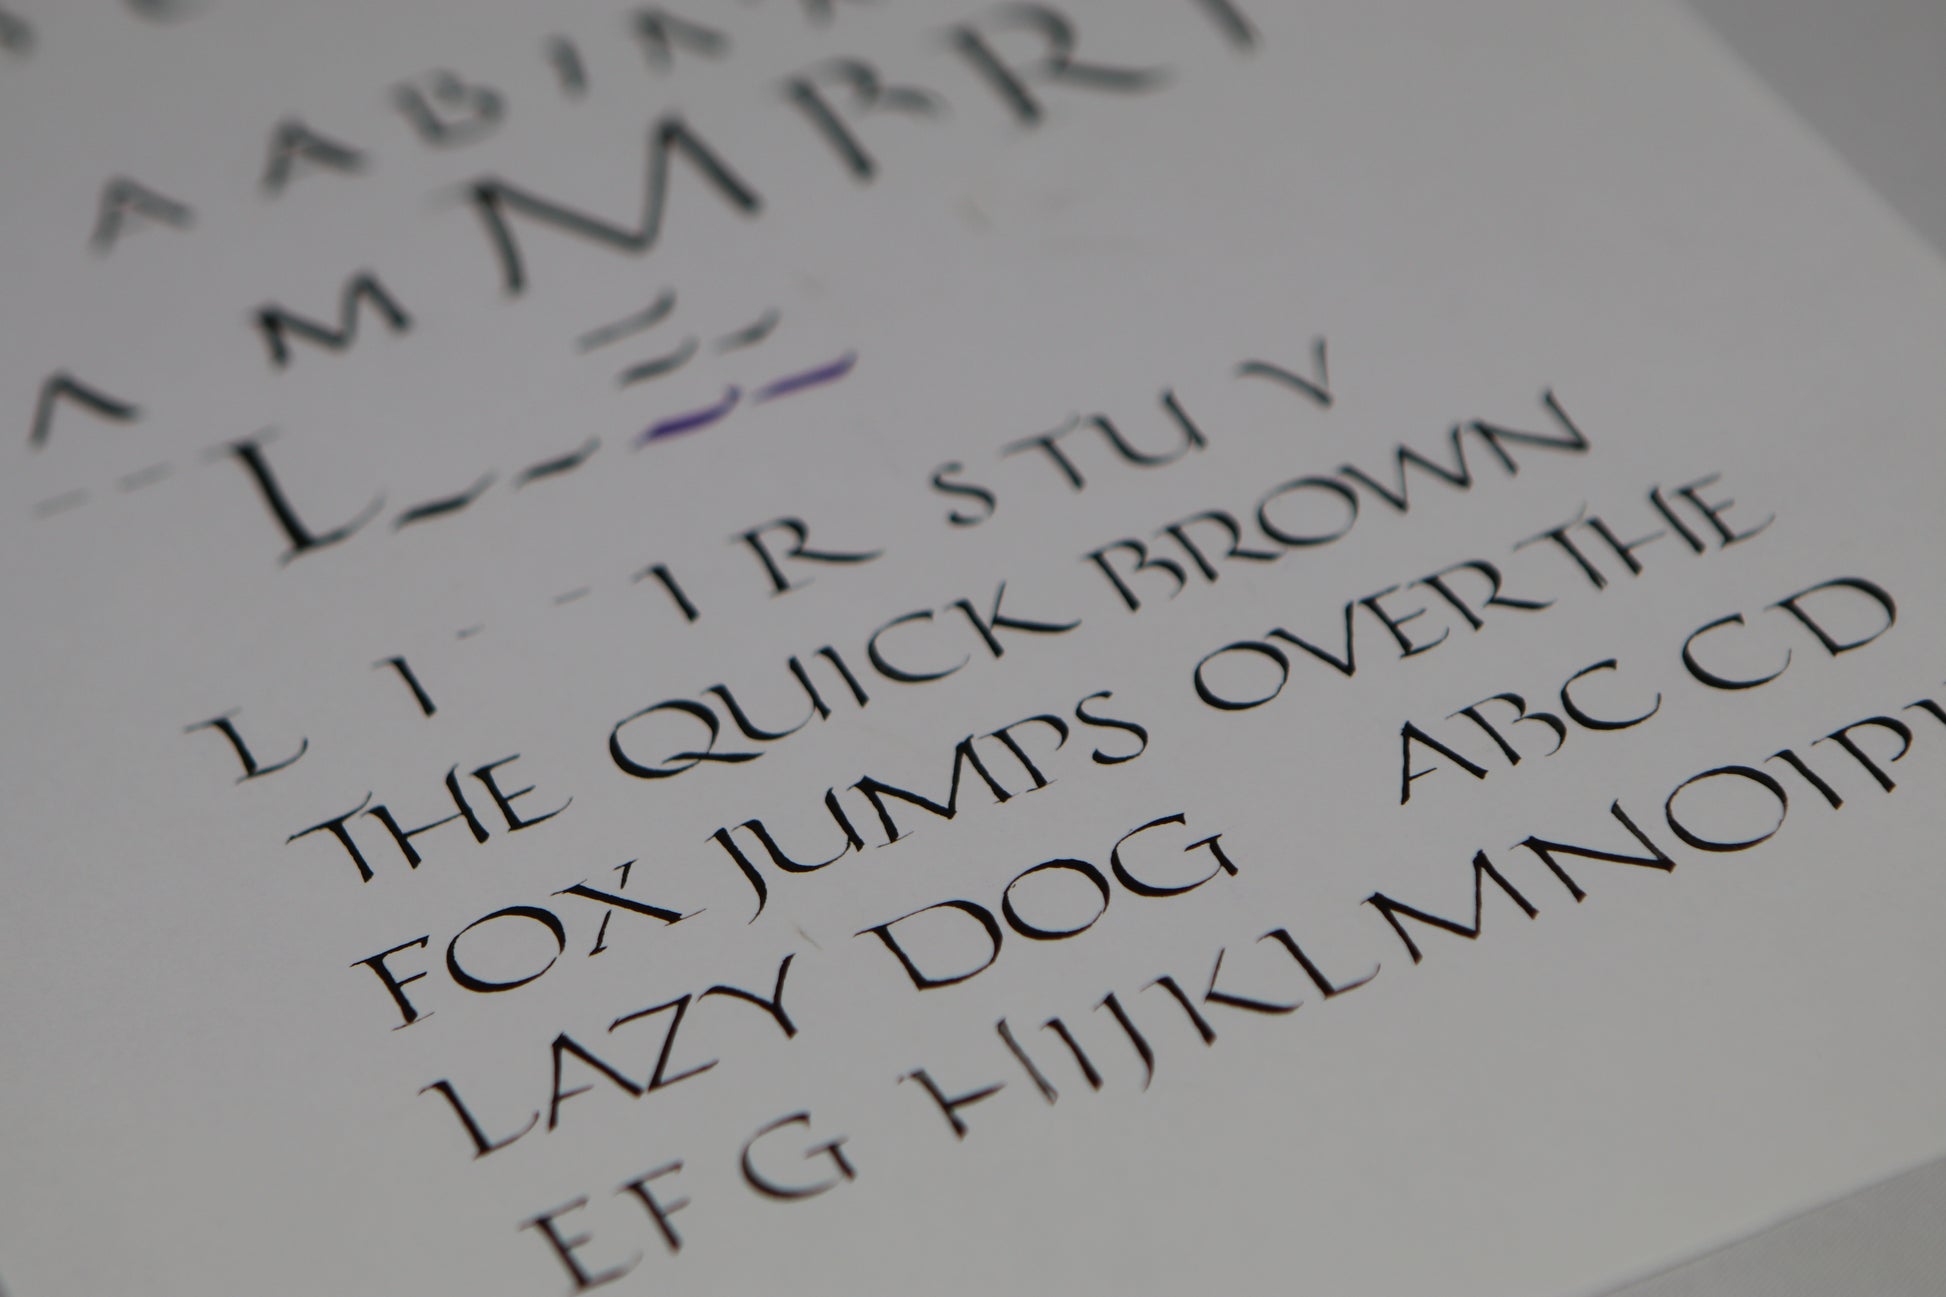 A A B I A
A M M R R
L
L I I R S T U V
THE QUICK BROWN
FOX JUMPS OVER THE
LAZY DOG ABC C D
E F G HIJKLMNOIP